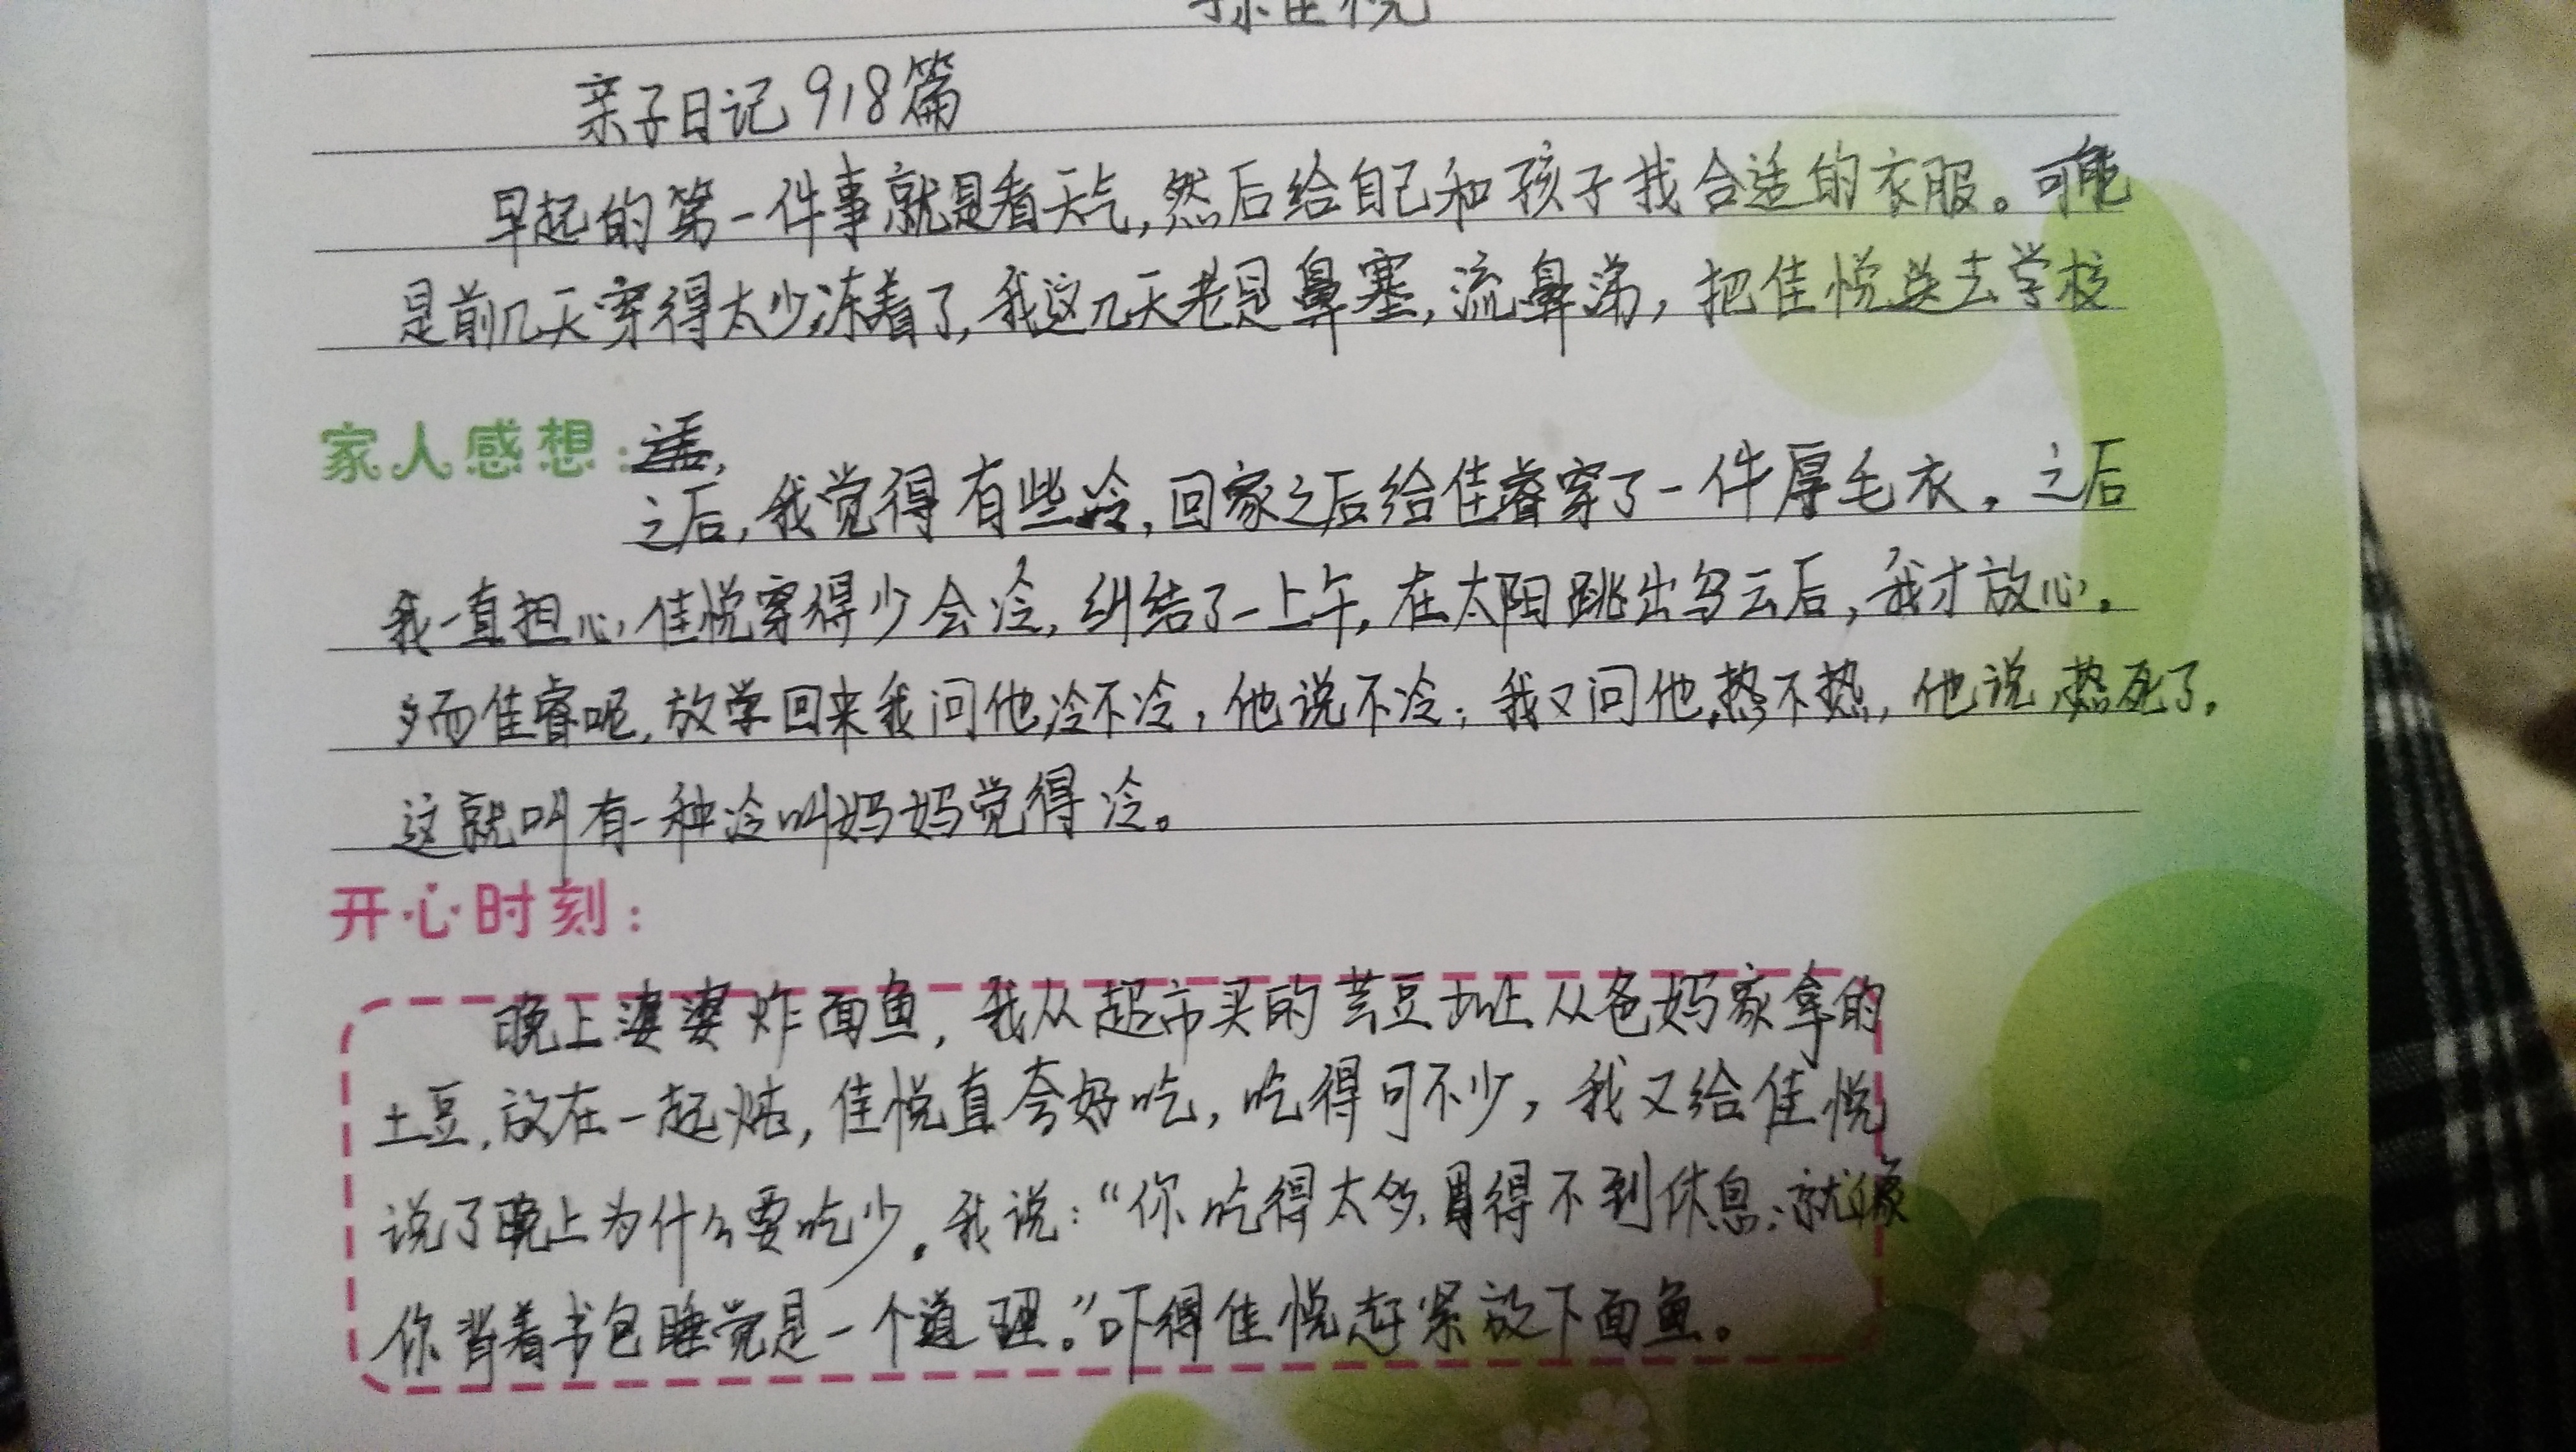 孙佳悦
亲子日记918篇
早起的第一件事就是看天气,然后给自己和孩子找合适的衣服。可能
是前几天穿得太少,冻着了,我这几天老是鼻塞,流鼻涕,把佳悦送去学校
家人感想:
之后,我觉得有些冷,回家之后给佳睿穿了一件厚毛衣。之后
我一直担心佳悦穿得少会冷,纠结了一上午,在太阳跳出乌云后,我才放心。
而佳睿呢,放学回来我问他冷不冷,他说不冷;我又问他热不热,他说热死了。
这就叫有一种冷叫妈妈觉得冷。
开心时刻:
晚上婆婆炸面鱼,我从超市买的芸豆加上从爸妈家拿的
土豆,放在一起炖,佳悦直夸好吃,吃得可不少,我又给佳悦
说了晚上为什么要吃少。我说:“你吃得太多,胃得不到休息;就像
你背着书包睡觉是一个道理。”吓得佳悦赶紧放下面鱼。